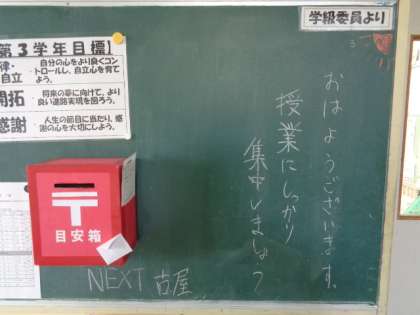 学級委員より
おはようございます。
授業にしっかり
集中しましょう
NEXT 古屋
第3学年目標】
律・
自立
自分の心をより良くコン
トロールし、自立心を育て
よう。
開拓
将来の夢に向けて、より
良い進路実現を図ろう。
感謝
人生の節目に当たり、感
謝の心を大切にしよう。
目安箱